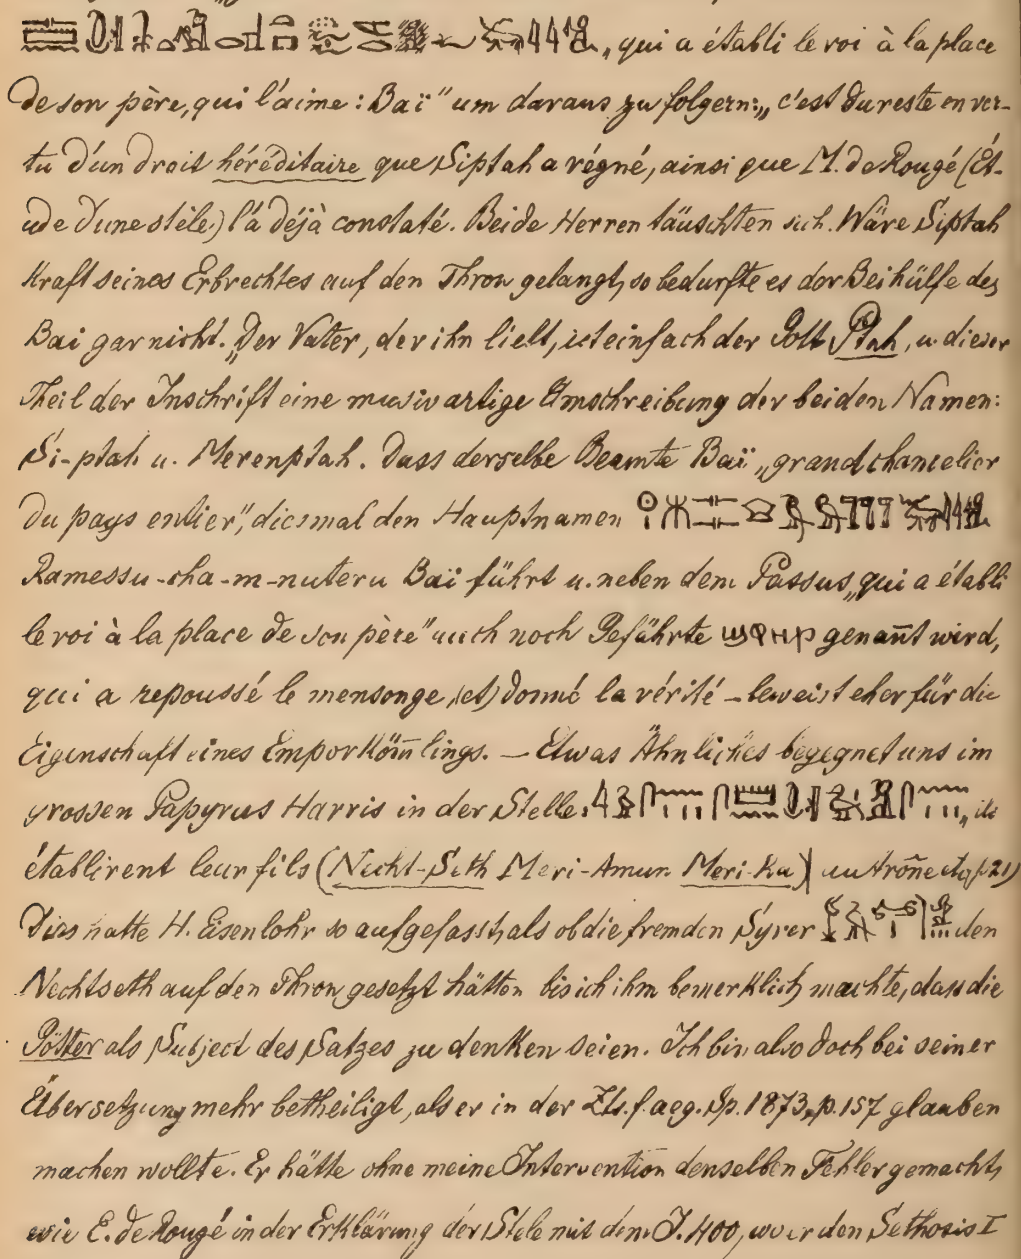 „qui a établi le roi à la place
de son père, qui l'aime: Baï“ um daraus zu folgern: „c'est du reste en ver-
tu d'un droit héréditaire que Siptah a régné, ainsi que M. de Rougé (Ét-
ude d'une stèle) l'a déjà constaté. Beide Herren täuschten sich. Wäre Siptah
kraft seines Erbrechtes auf den Thron gelangt, so bedurfte es der Beihülfe des
Bai gar nicht. „Der Vater, der ihn liebt, ist einfach der Gott Ptah, u. dieser
Theil der Inschrift eine musivartige Umschreibung der beiden Namen:
Si-ptah u. Merenptah. Dass derselbe Beamte Baï „grand chancelier
du pays entier“, diesmal den Hauptnamen
Ramessu-cha-m-nuteru Baï führt u. neben dem Passus „qui a établi
le roi à la place de son père“ auch noch Gefährte ϣⲫⲏⲣ genan̄t wird,
qui a repoussé le mensonge, (et) donné la vérité – beweist eher für die
Eigenschaft eines Emporköm̄lings. – Etwas Ähnliches begegnet uns im
grossen Papyrus Harris in der Stelle: „ils
établirent leur fils (Necht-Seth Meri-Amun Meri-Ra) au trône etc, p. 21)
Dies hatte H. Eisenlohr so aufgefasst, als ob die fremden Syrer den
Nechtseth auf den Thron gesetzt hätten bis ich ihm bemerklich machte, dass die
Götter als Subject des Satzes zu denken seien. Ich bin also doch bei seiner
Übersetzung mehr betheiligt, als er in der Zts. f. aeg. Sp. 1873, p. 157 glauben
machen wollte. Er hätte ohne meine Intervention denselben Fehler gemacht,
wie E. de Rougé in der Erklärung der Stele mit dem J. 400, wo er den Sethosis I